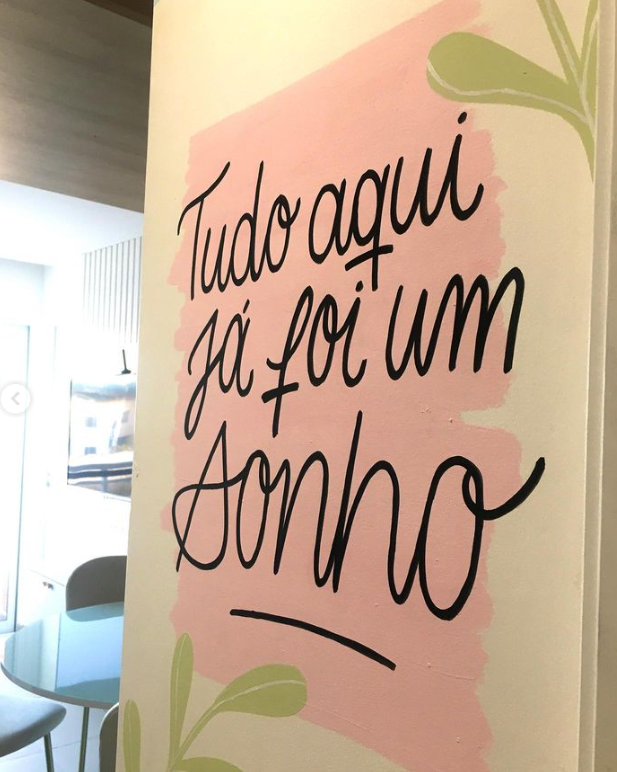 Tudo aqui
já foi um
sonho